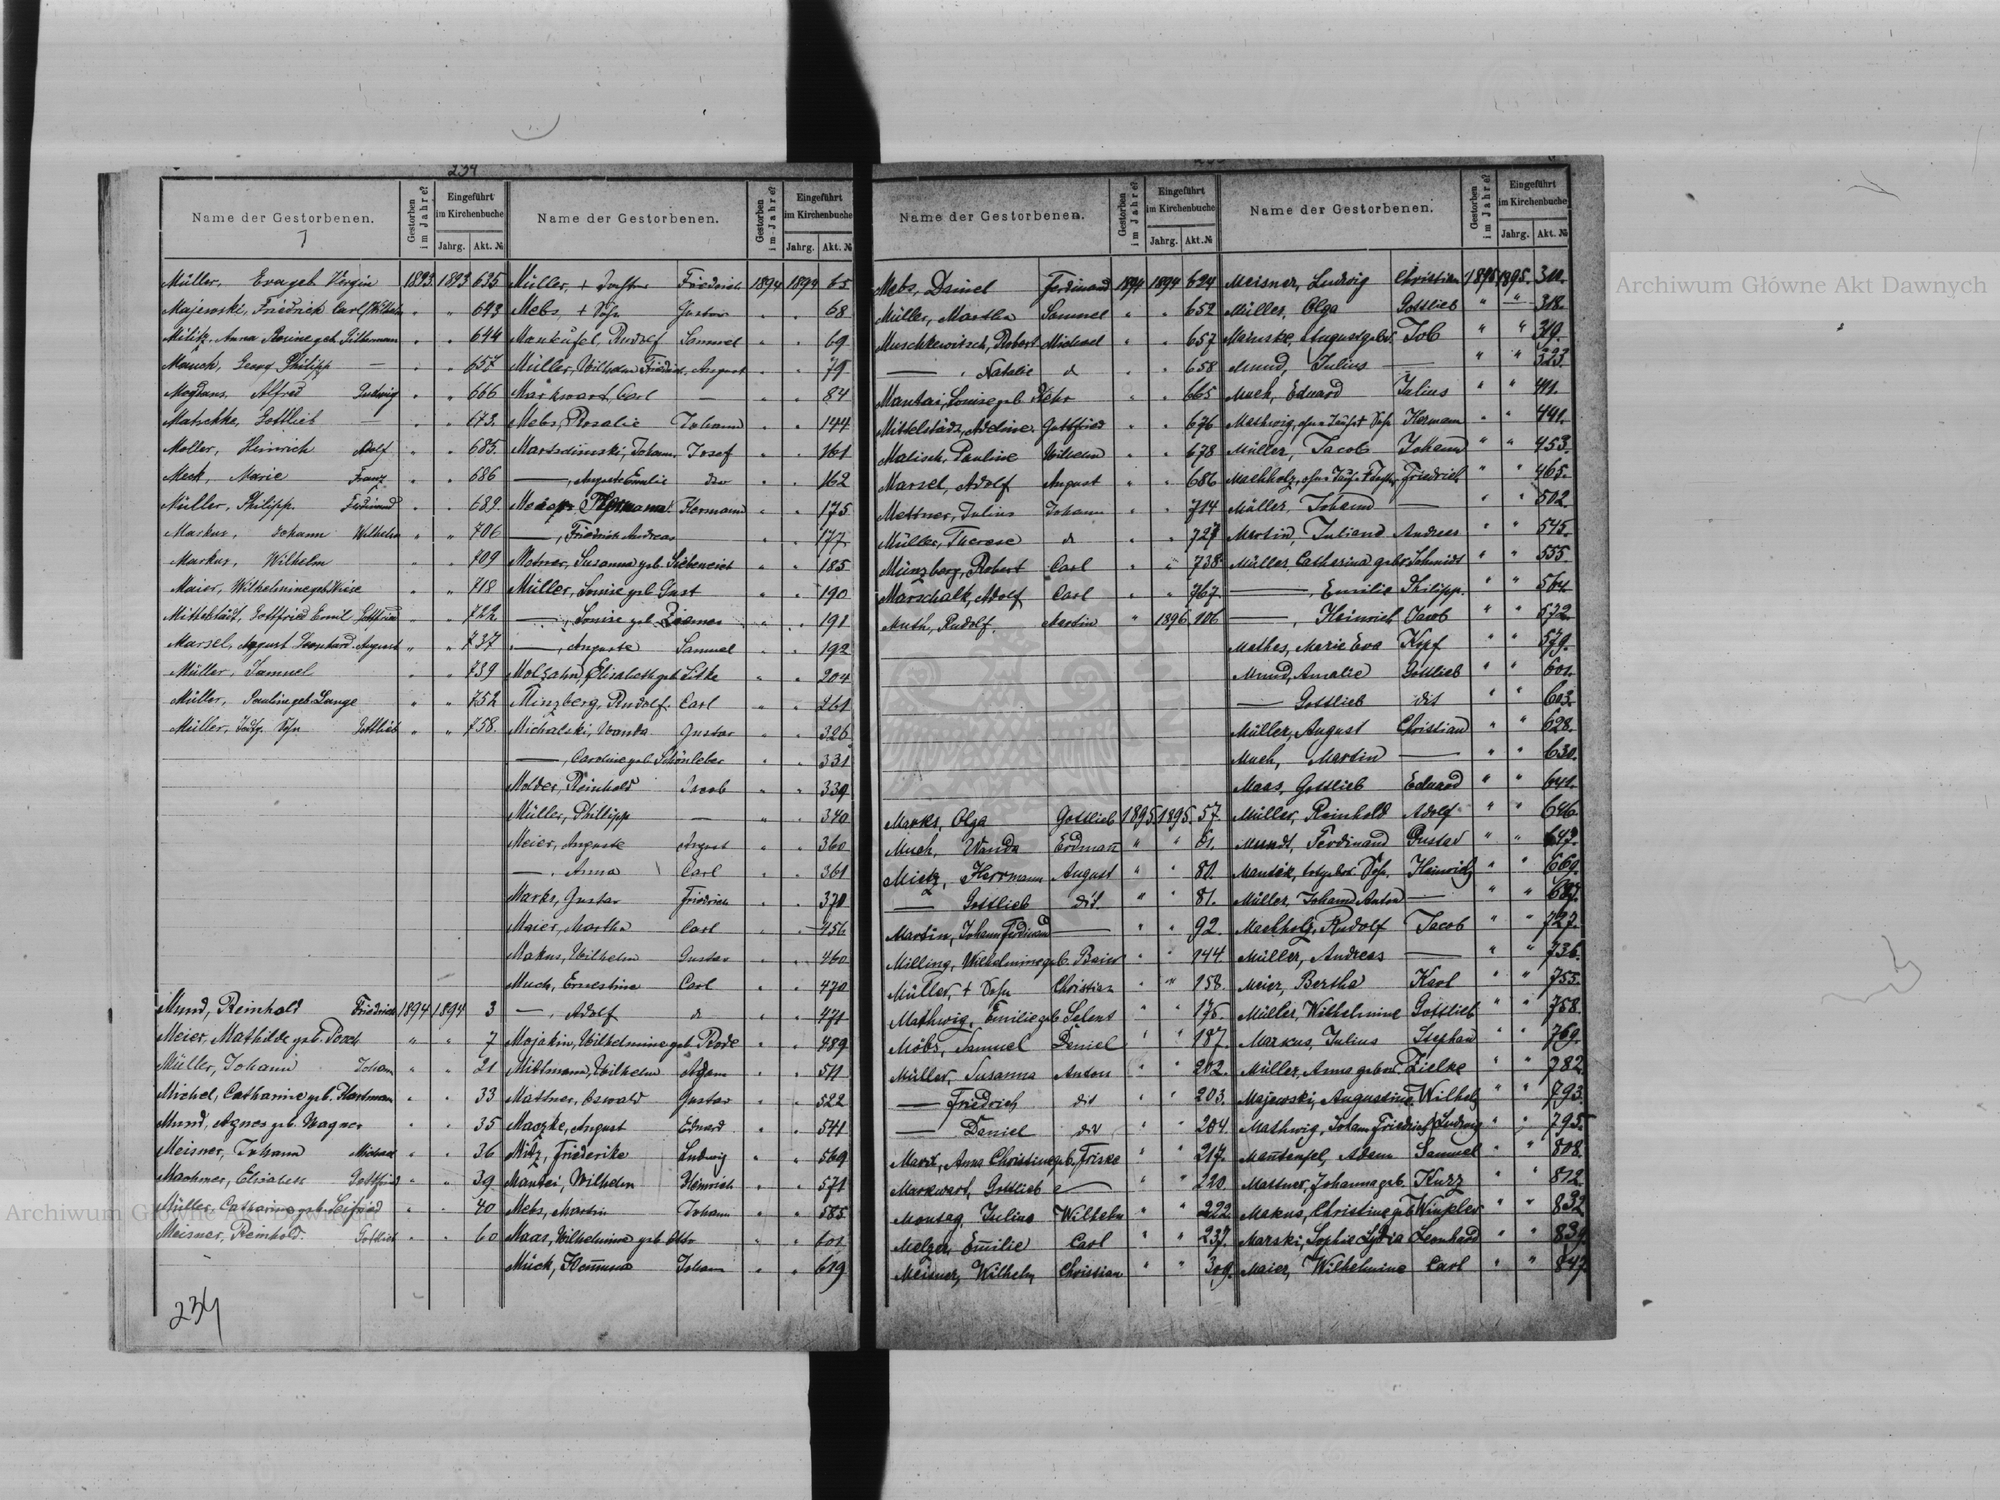 234
Name der Gestorbenen.
Gestorben im Jahre?
Eingeführt im Kirchenbuche
Jahrg.
Akt. №
Müller, Eva geb. 1893 1893 635
Majewski, Friedrich Carl Wilhelm " " 643
Militz, Anna Rosine geb. " " 644
Mauch, Georg Philipp — " " 657
Alfred Ludwig " " 666
Matschke, Gottlieb — " " 673.
Moller, Heinrich Adolf " " 685.
Meck, Marie Franz " " 686
Müller, Philipp. Ferdinand " " 689.
Markus, Johann Wilhelm " " 706
Markus, Wilhelm " " 709
Maier, Wilhelmine geb. Weise " " 718
Mittelstädt, Gottfried Emil Gottfried " " 722
Marsel, August Leonhard August " " 737
Müller, Samuel " " 739
Müller, Pauline geb. Lange " " 752
Müller, Todtg. Sohn Gottlieb " " 758.
Mund, Reinhold Friedrich 1894 1894 3
Meier, Mathilde geb. " " 7
Müller, Johann Johann " " 21
Michel, Catharine geb. Hartman " " 33
Mund, Agnes geb. Wagner " " 35
Meisner, Johann Michael " " 36
Machner, Elisabeth Gottfried " " 39
Müller, Catharine geb. Seifried " " 40
Meisner, Reinhold. Gottlieb " " 60
234
Name der Gestorbenen.
Gestorben im Jahre?
Eingeführt im Kirchenbuche
Jahrg.
Akt. №
Müller, + Tochter Friedrich 1894 1894 65
Mebs, + Sohn Gustav " " 68
Manteufel, Rudolf Samuel " " 69
Müller, Wilhelm Friedrich August " " 79
Markwart, Carl — " " 84
Mebs, Rosalie Johann " " 144
Johann Josef " " 161
—, Auguste Emilie dto " " 162
Hermann " " 175
—, Friedrich Andreas " " 177
Susanna geb. Siebeneich " " 185
Müller, Louise geb. Gust " " 190
—, Louise geb. " " 191
—, Auguste Samuel " " 192
Molzahn, Elisabeth geb. Litke " " 204
Münzberg, Rudolf. Carl " " 261
Michalski, Wanda Gustav " " 326
—, Caroline geb. Schönleber " " 331
Molder, Reinhold Jacob " " 339
Müller, Philipp — " 340
Meier, Auguste August " " 360
—, Anna Carl " " 361
Marks, Gustav Friedrich " " 370
Maier, Martha Carl " " 456
Makus, Wilhelm Gustav " " 460
Much, Ernestine Carl " " 470
—, Adolf d " " 471
Majakin, Wilhelmine geb. Rode " " 489
Mittmann, Wilhelm Adam " " 511
Mattner, Oswald Gustav " " 522
Maczke, August Eduard " " 541
Mitz, Friederike Ludwig " " 569
Mantei, Wilhelm Heinrich " " 571
Mebs, Martin Johann " " 585
Maas, Wilhelmine geb. Otto " " 601
Mück, Johann " " 619
Name der Gestorbenen.
Gestorben im Jahre?
Eingeführt im Kirchenbuche
Jahrg.
Akt. №
Mebs, Daniel Ferdinand 1894 1894 624
Müller, Martha Samuel " " 652
Muschkewitsch, Robert Michael " " 657
—, Natalie d " " 658
Mantai, Louise geb. Fehr " " 665
Mittelstädt, Adeline Gottfried " " 676
Matisch, Pauline Wilhelm " " 678
Marsel, Adolf August " " 686
Mettner, Julius Johann " " 714
Müller, Therese d " " 727
Münzberg, Robert Carl " " 738
Marschalk, Adolf Carl " " 767
Muth, Rudolf. Martin " 1896 106
Marks, Olga Gottlieb 1895 1895. 57.
Much, Wanda Erdman " " 61.
Mietz, Herrmann August " " 80.
— Gottlieb dit. " " 81.
Martin, Johann Ferdinand — " " 92.
Milling, Wilhelmine geb. Baier " " 144.
Müller, + Sohn Christian " " 158.
Mathwig, Emilie geb. Selent " " 175.
Möbs, Samuel Daniel " " 187.
Müller, Susanna Anton " " 202.
— Friedrich dit " " 203.
— Daniel dit " " 204.
Anna Christine geb. Friske " " 217.
Markwart, Gottlieb — " " 220
Montag, Julius Wilhelm " " 222.
Melzer, Emilie Carl " " 237.
Meisner, Wilhelm Christian " " 309.
Name der Gestorbenen.
Gestorben im Jahre?
Eingeführt im Kirchenbuche
Jahrg.
Akt. №
Meisner, Ludwig Christian 1895 1895. 310.
Müller, Olga Gottlieb " " 318.
August " " 319.
Mund, Julius — " " 323.
Much, Eduard Julius " " 411.
Mathwig, ohne Taufe + Sohn Hermann " " 441.
Müller, Jacob Johann " " 453.
Machholz, ohne Taufe + Tochter Friedrich " " 465.
Müller, Johann — " " 512.
Martin, Juliand Andreas " " 545.
Müller, Catharina geb. Schmidt " " 555.
—, Emilie Philipp. " " 564.
—, Heinrich Jacob " " 572.
Mathes, Marie Eva Kopf " " 579.
Mund, Amalie Gottlieb " " 601.
— Gottlieb dit " " 603.
Müller, August Christian " " 628.
Much, Martin — " " 630.
Maas, Gottlieb Eduard " " 641.
Müller, Reinhold Adolf " " 646.
Mundt, Ferdinand Gustav " " 647.
Sohn Heinrich " " 660.
Müller, Johann Anton — " " 687.
Machholz, Rudolf Jacob " " 727.
Müller, Andreas — " " 736.
Meier, Bertha Karl " " 755.
Müller, Wilhelmine Gottlieb " " 758.
Markus, Julius Stephan " " 769.
Müller, Anna geboren Zielke " " 782.
Majewski, Augustine Wilhelm " " 793.
Mathwig, Johann Friedrich Ludwig " " 795.
Manteufel, Adam Samuel " " 808.
Mattner, Johanna geb. Kurz " " 812.
Makus, Christine geb. Winkler " " 832
Marski, Sophie Lydia Leonhard " " 839.
Maier, Wilhelmine Carl " " 847
Archiwum Główne Akt Dawnych
Archiwum Główne Akt Dawnych